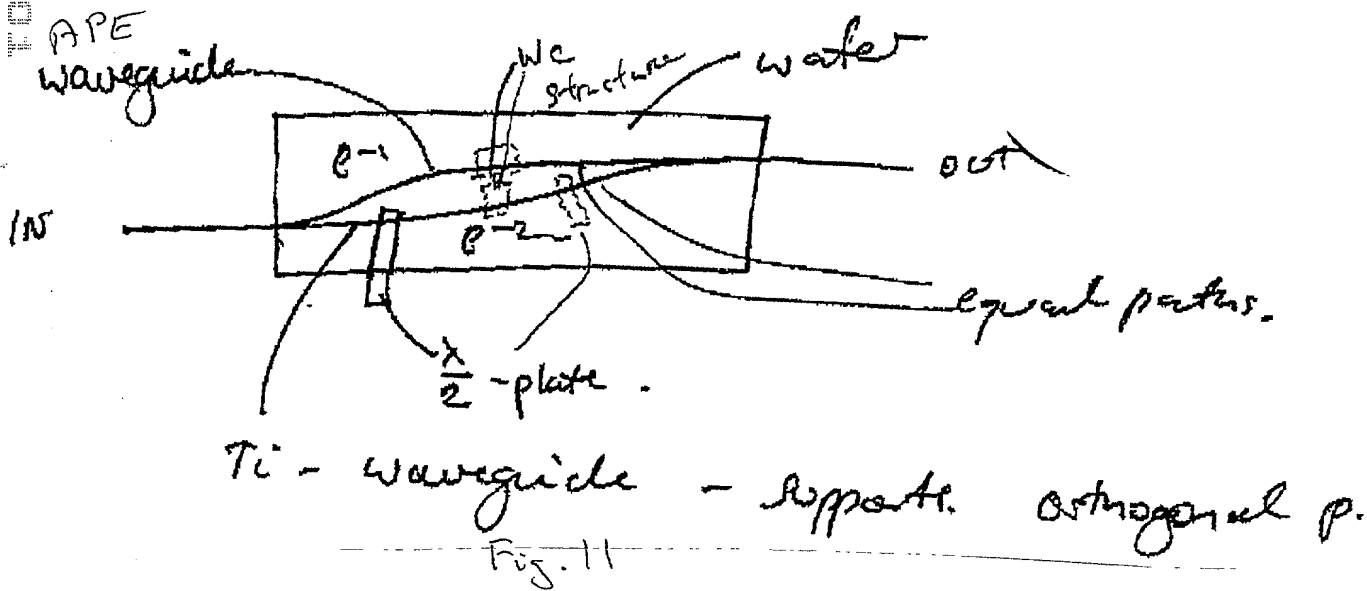 APE
waveguide
WC
structure
wafer
IN
out
equal paths.
λ/2 - plate .
Ti - waveguide - supports. orthogonal p.
Fig. 11